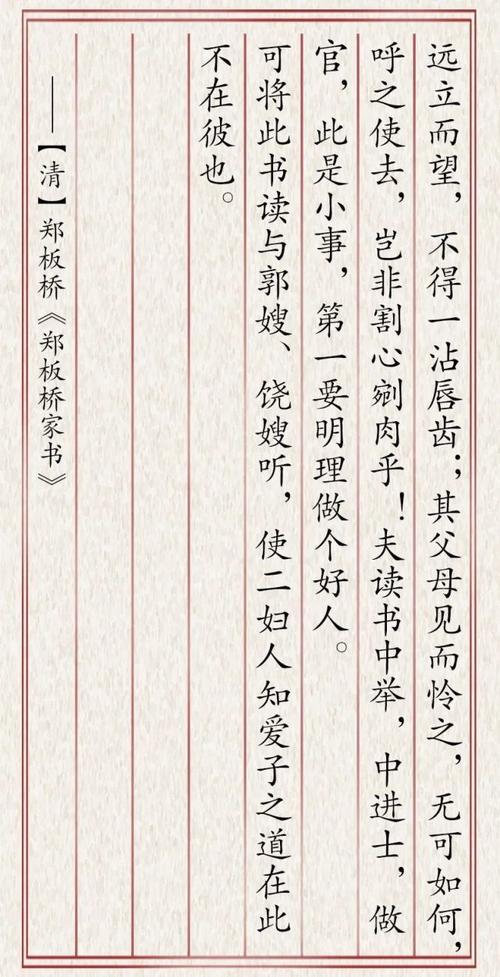 远立而望，不得一沾唇齿；其父母见而怜之，无可如何，
呼之使去，岂非割心剜肉乎！夫读书中举，中进士，做
官，此是小事，第一要明理做个好人。
可将此书读与郭嫂、饶嫂听，使二妇人知爱子之道在此
不在彼也。
——【清】郑板桥《郑板桥家书》